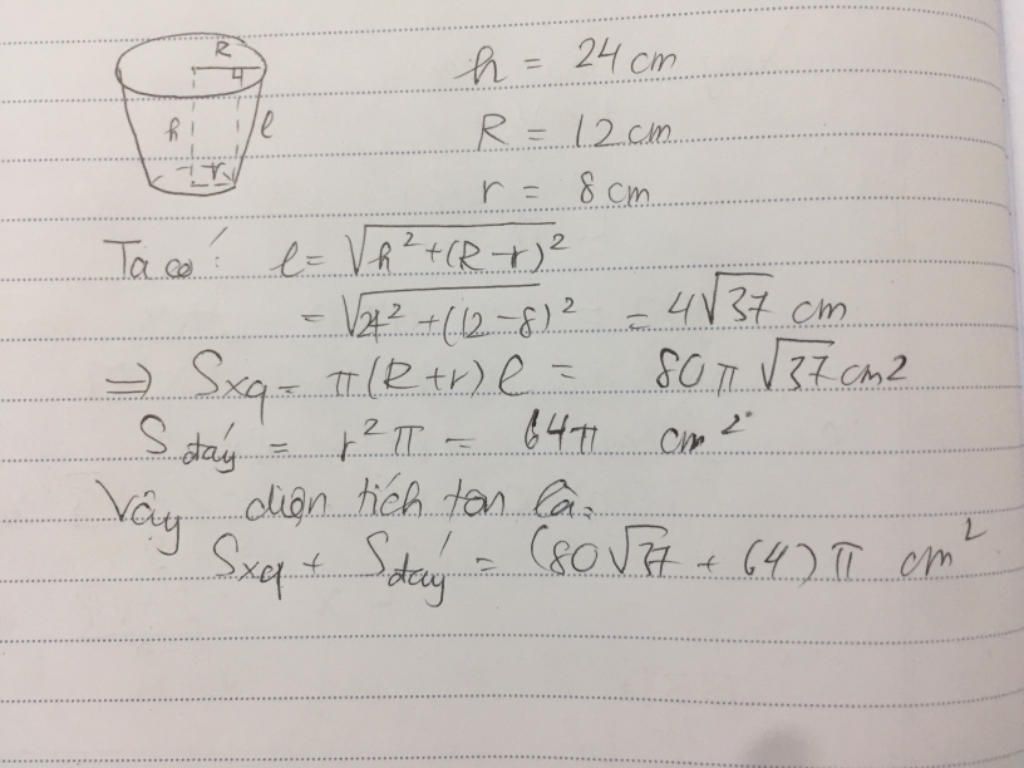 R
h = 24 cm
h
l
R = 12 cm
r
r = 8 cm
Ta có: l = √(h² + (R - r)²)
= √(24² + (12 - 8)²) = 4√37 cm
=> Sxq = π(R + r) l = 80π √37 cm2
S đáy = r²π = 64π cm²
Vậy diện tích ton là:
Sxq + S đáy = (80√37 + 64) π cm²